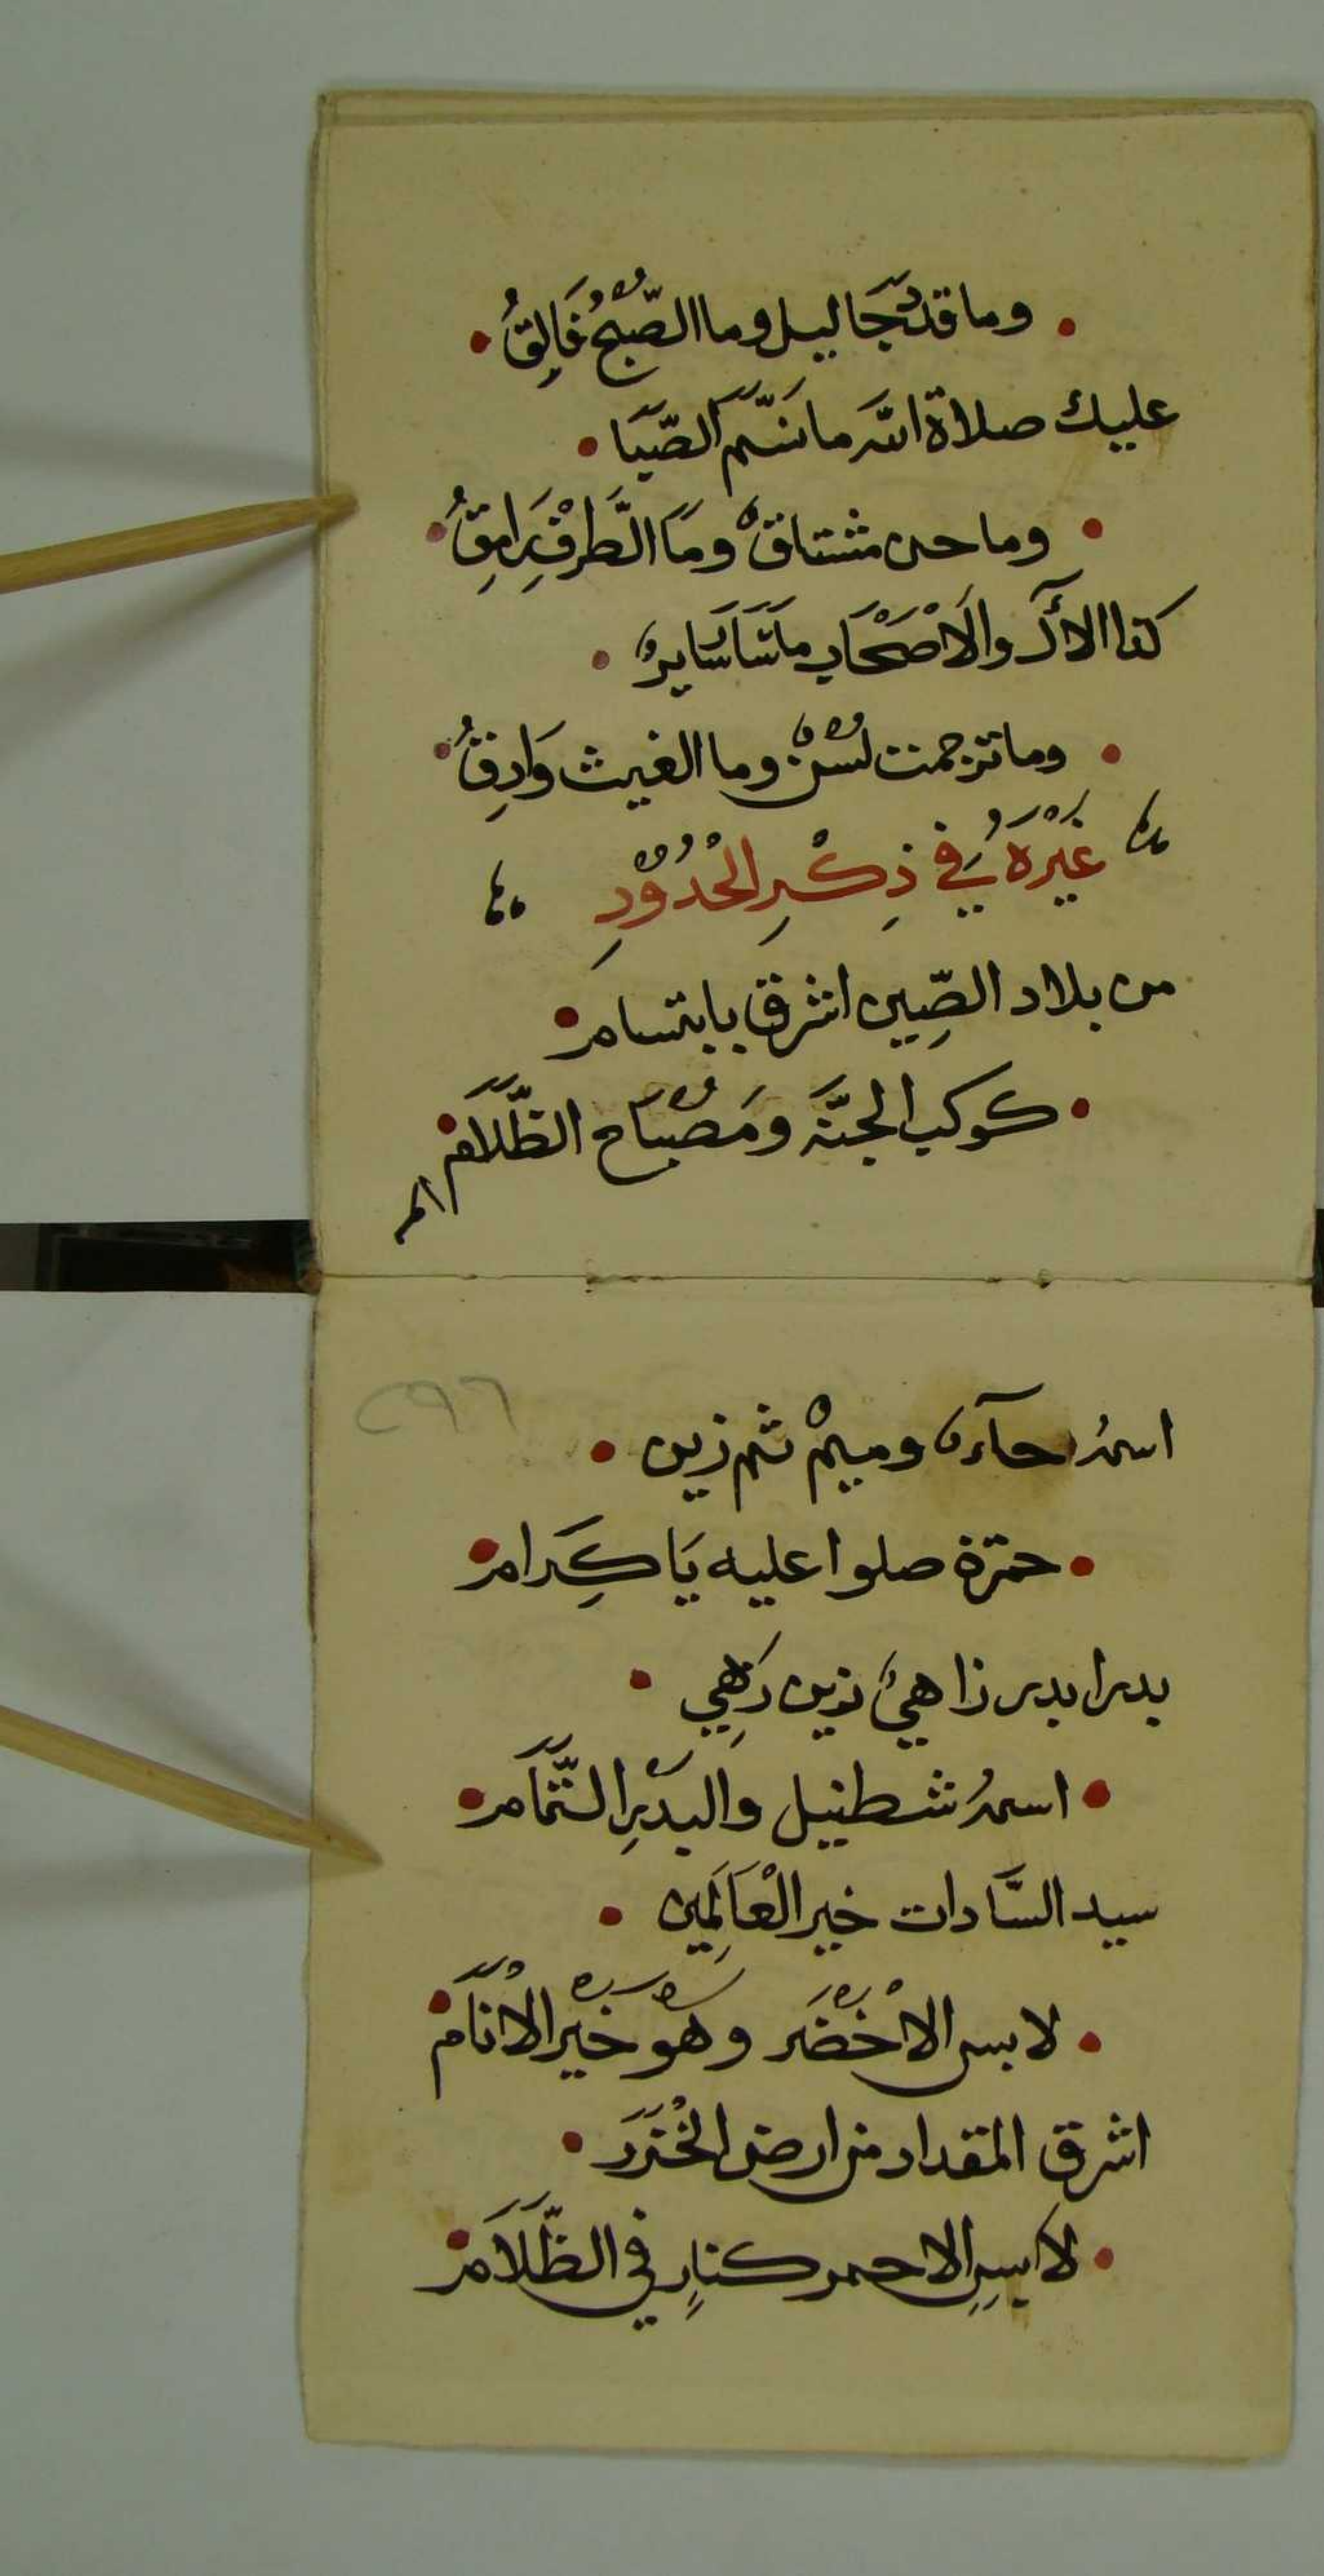 • وما قد دَجَا ليل وما الصّبْحُ فَالِقُ •
عليك صلاة الله ما نَسَّمَ الصَّبَا •
• وما حن مشتاقْ ومَا الطَّرْفُ رَامِقُ •
كذا الال والاَصْحَاب ما سَارَ سَايرٌ •
• وما ترجمت لسْنٌ وما الغيث وَادِقُ •
غَيْرَهُ فِي ذِكْرِ الْحُدُوْدِ
من بلاد الصِّين اشرق بابتسام •
• كوكب الجنَّه ومَصْبَاح الظَّلَام •
اسم
٢٩٦
اسمهُ حآءٌ وميمْ ثم زين •
• حمزة صلوا عليه يَا كِرام •
بدرا بدر زاهيُ زين زَهِي •
• اسمهُ شطنيل والبدْرِ التَّمَام •
سيد السَّادات خير الْعَالَمِين •
• لابس الاْخْضَر وهْو خَيْر الاْنَام •
اشرق المقداد من ارض الْخَزَر •
• لابسِ الاحمر كنارٍ في الظَّلَام •